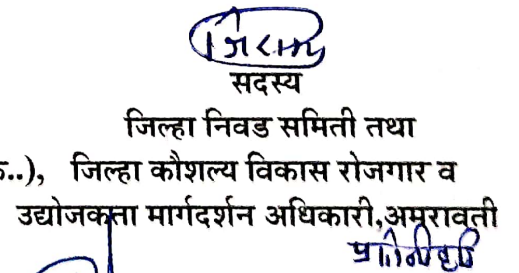 सदस्य
जिल्हा निवड समिती तथा
..), जिल्हा कौशल्य विकास रोजगार व
उद्योजकता मार्गदर्शन अधिकारी,अमरावती